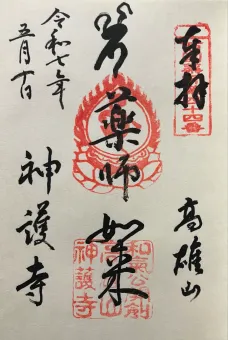 奉拝
高雄山
薬師如来
令和七年
五月十日
神護寺
神護寺